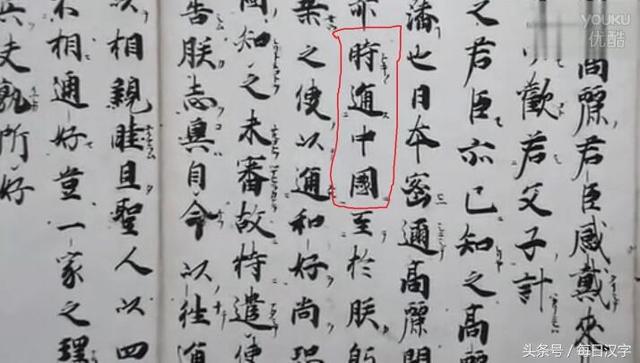 YOUKU
优酷
高麗君臣感戴來
歡若父子計
之君臣亦已知之高
藩也日本密邇高麗開
亦時通中國至於朕躬
乘之使以通和好尚恐
國知之未審故特遣使
告朕志冀自今以往通
以相親睦且聖人以四
不相通好豈一家之理
兵夫孰所好
头条号 / 每日汉字